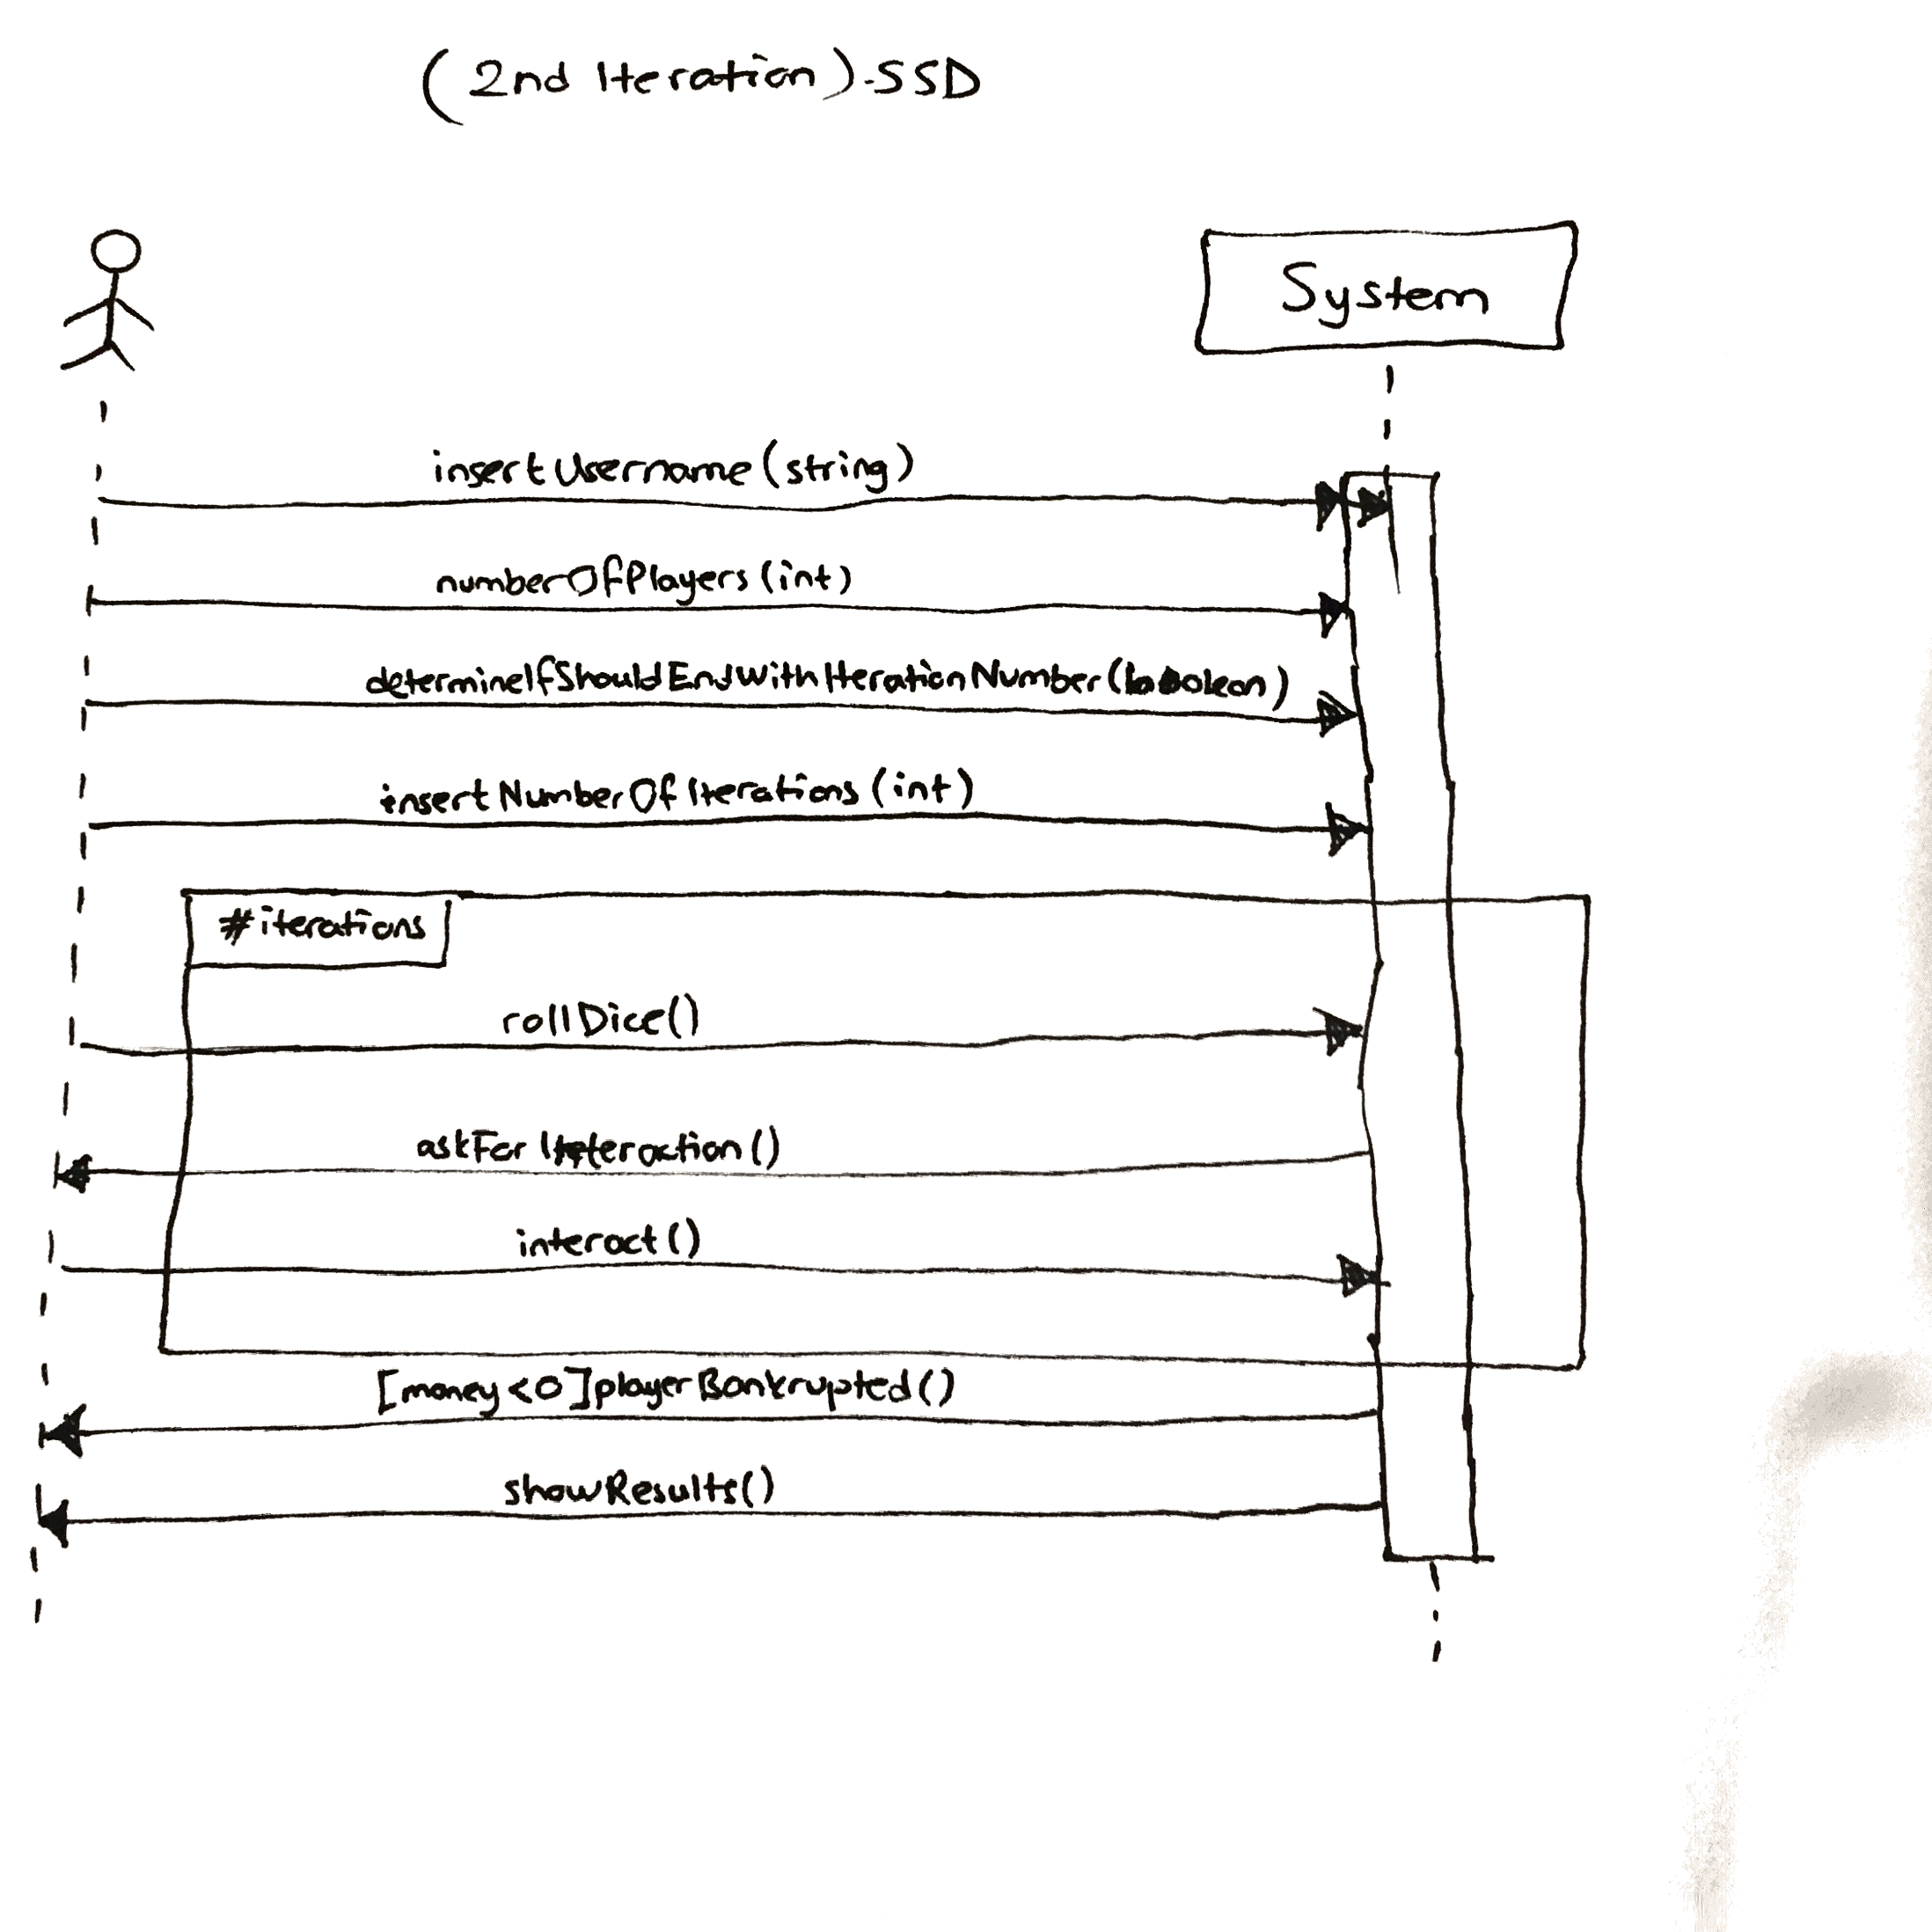 (2nd Iteration)-SSD
System
insertUsername(string)
numberOfPlayers(int)
determineIfShouldEndWithIterationNumber(boolean)
insertNumberOfIterations(int)
#iterations
rollDice()
askForInteraction()
interact()
[money<0]playerBankrupted()
showResults()